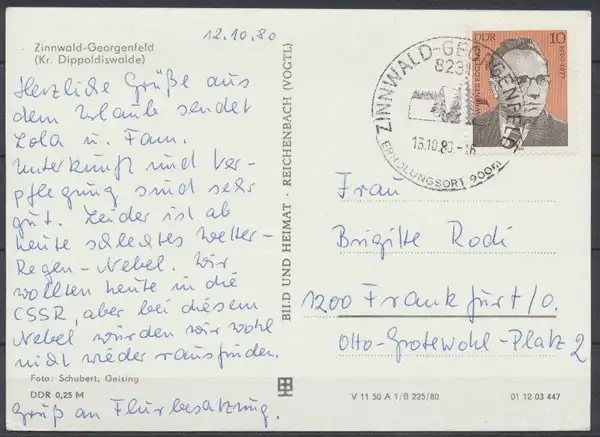 12.10.80
Zinnwald-Georgenfeld
(Kr. Dippoldiswalde)
Herzliche Grüße aus
dem Urlaub sendet
Lola u. Fam.
Unterkunft und Ver-
pflegung sind sehr
gut. Leider ist ab
heute schlechtes Wetter -
Regen - Nebel. Wir
wollten heute in die
CSSR, aber bei diesem
Nebel würden wir wohl
nicht wieder rausfinden.
Foto: Schubert, Geising
DDR 0,25 M
Gruß an Flurbesatzung.
BILD UND HEIMAT · REICHENBACH (VOGTL)
ZINNWALD-GEORGENFELD
8235
13.10.80-16
ERHOLUNGSORT 900m
DDR 10
Frau
Brigitte Rodi
1200 Frankfurt/O.
Otto-Grotewohl-Platz 2
V 11 50 A 1/B 225/80
01 12 03 447